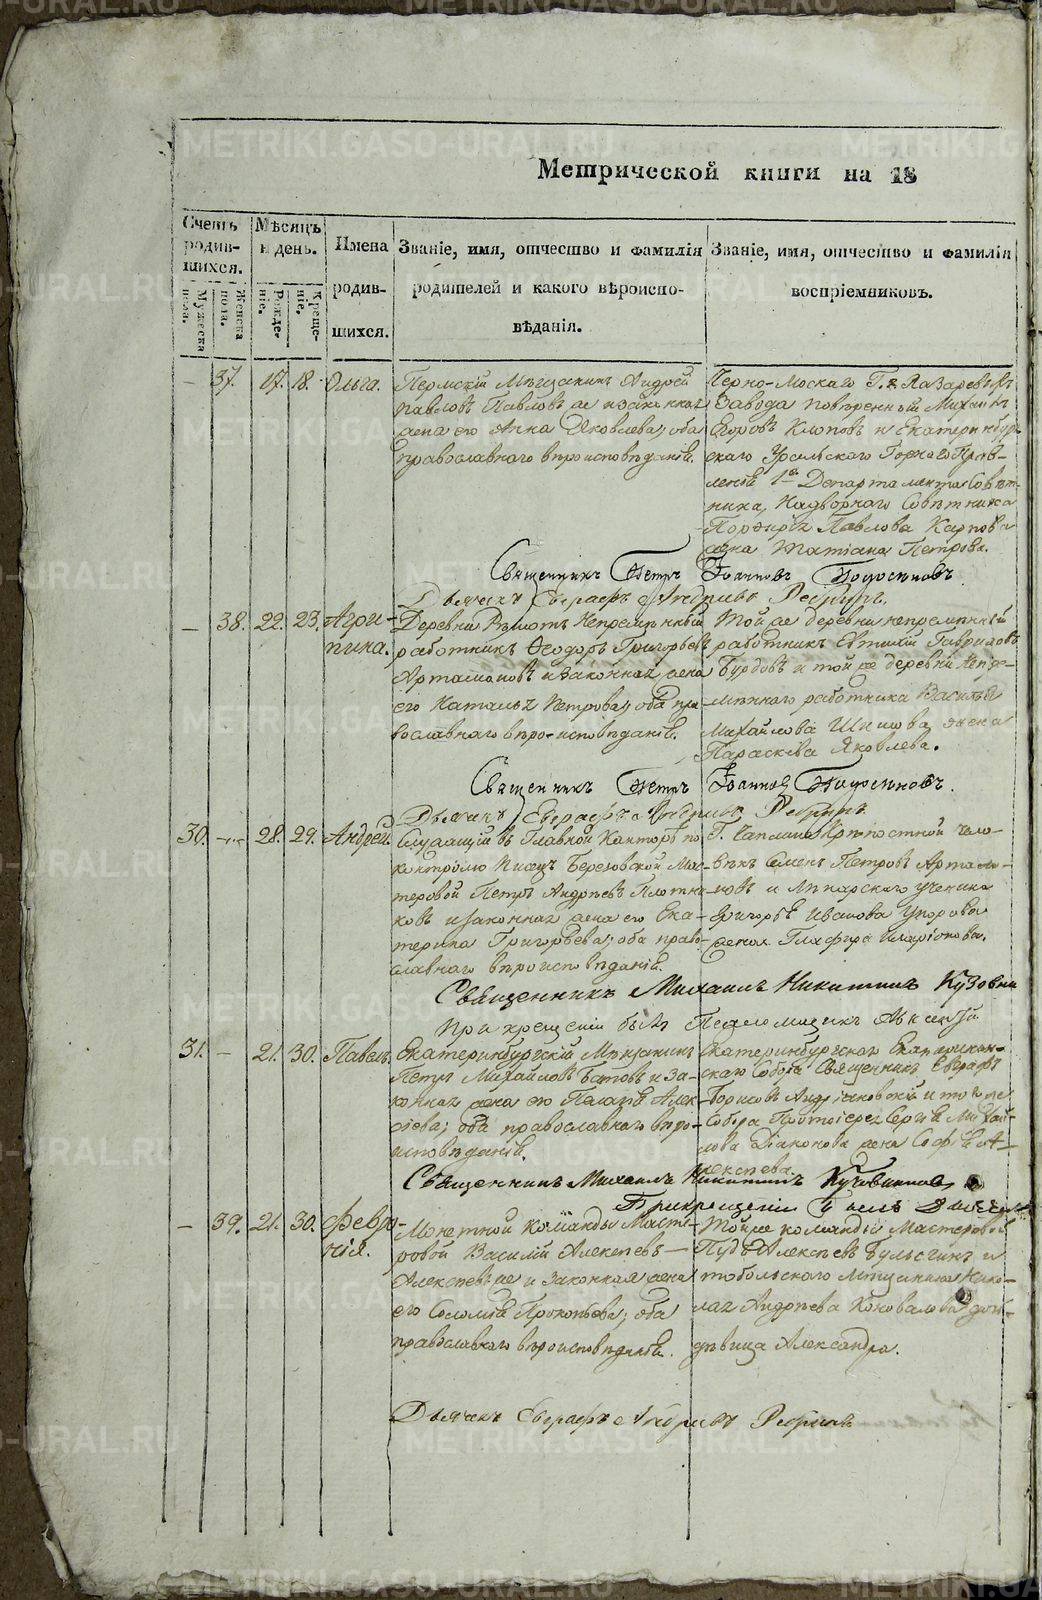 METRIKI.GASO-URAL.RU
Метрической книги на 18
Счетъ родив-шихся.
Мужеска пола.
Женска пола.
Мѣсяцъ и день.
Рожде-ніе.
Креще-ніе.
Имена родив-шихся.
Званіе, имя, отчество и фамилія родителей и какого вѣроиспо-вѣданія.
Званіе, имя, отчество и фамилія воспріемниковъ.
— 37. 17. 18. Ольга.
Пермскій Мѣщанинъ Андрей
Павловъ Павловъ же и законная
жена его Анна Яковлева; оба
православнаго вѣроисповѣданія.
Завода повѣренный Михаилъ
Егоровъ Клоповъ и Екатеринбур-
скаго Уральскаго Горнаго Прав-
ленія 1го Департамента Совѣт-
ника, Надворнаго Совѣтника
Порфирія Павлова Карпова
жена Татіана Петрова.
Священникъ Петръ Іоанновъ
Дьячекъ Евграфъ Андріевъ
— 38. 22. 23. Агри-
пина.
Деревни Непремѣнный
работникъ Ѳеодоръ Григорьевъ
Артамоновъ и законная жена
его Наталья Петрова; оба пра-
вославнаго вѣроисповѣданія.
Той же деревни непремѣнный
работникъ Евтихій Гавриловъ
Бурдовъ и той же деревни Непре-
мѣннаго работника Василья
Михайлова Шилова жена
Параскева Яковлева.
Священникъ Петръ Іоанновъ
Дьячекъ Евграфъ Андріевъ
30. — 28. 29. Андрей.
Служащій въ Главной Канторѣ по
контролю Писецъ Березовской Мас-
теровой Петръ Андреевъ Плотни-
ковъ и законная жена его Ека-
терина Григорьева; оба право-
славнаго вѣроисповѣданія.
Крѣпостной чело-
вѣкъ Семенъ Петровъ Артамо-
новъ и Лѣкарскаго ученика
Григорья Иванова Упорова
жена Глафира Иларіонова.
Священникъ Михаилъ Никитинъ
При крещеніи былъ Псаломщикъ Алексѣй
31. — 21. 30. Павелъ.
Екатеринбургскій Мѣщанинъ
Петръ Михайловъ Батовъ и за-
конная жена его Пелагія Алек-
сѣева; оба православнаго вѣро-
исповѣданія.
Екатеринбургскаго Екатеринин-
скаго Собора Священникъ Евграфъ
Борисовъ Андроновскій и того же
Собора Протоіерея Сергія Михай-
лова Діаконова жена Софія А-
лексѣева.
Священникъ Михаилъ Никитинъ
При крещеніи
— 39. 21. 30. Февро-
нія.
Монетной Команды Масте-
ровой Василій Алексѣевъ
Алексѣевъ же и законная жена
его Соломія Прокопьева; оба
православнаго вѣроисповѣданія.
Той же команды Мастеровой
Тобольскаго Мѣщанина Нико-
лая Андреева Коновалова дочь
дѣвица Александра.
Дьячекъ Евграфъ Андріевъ